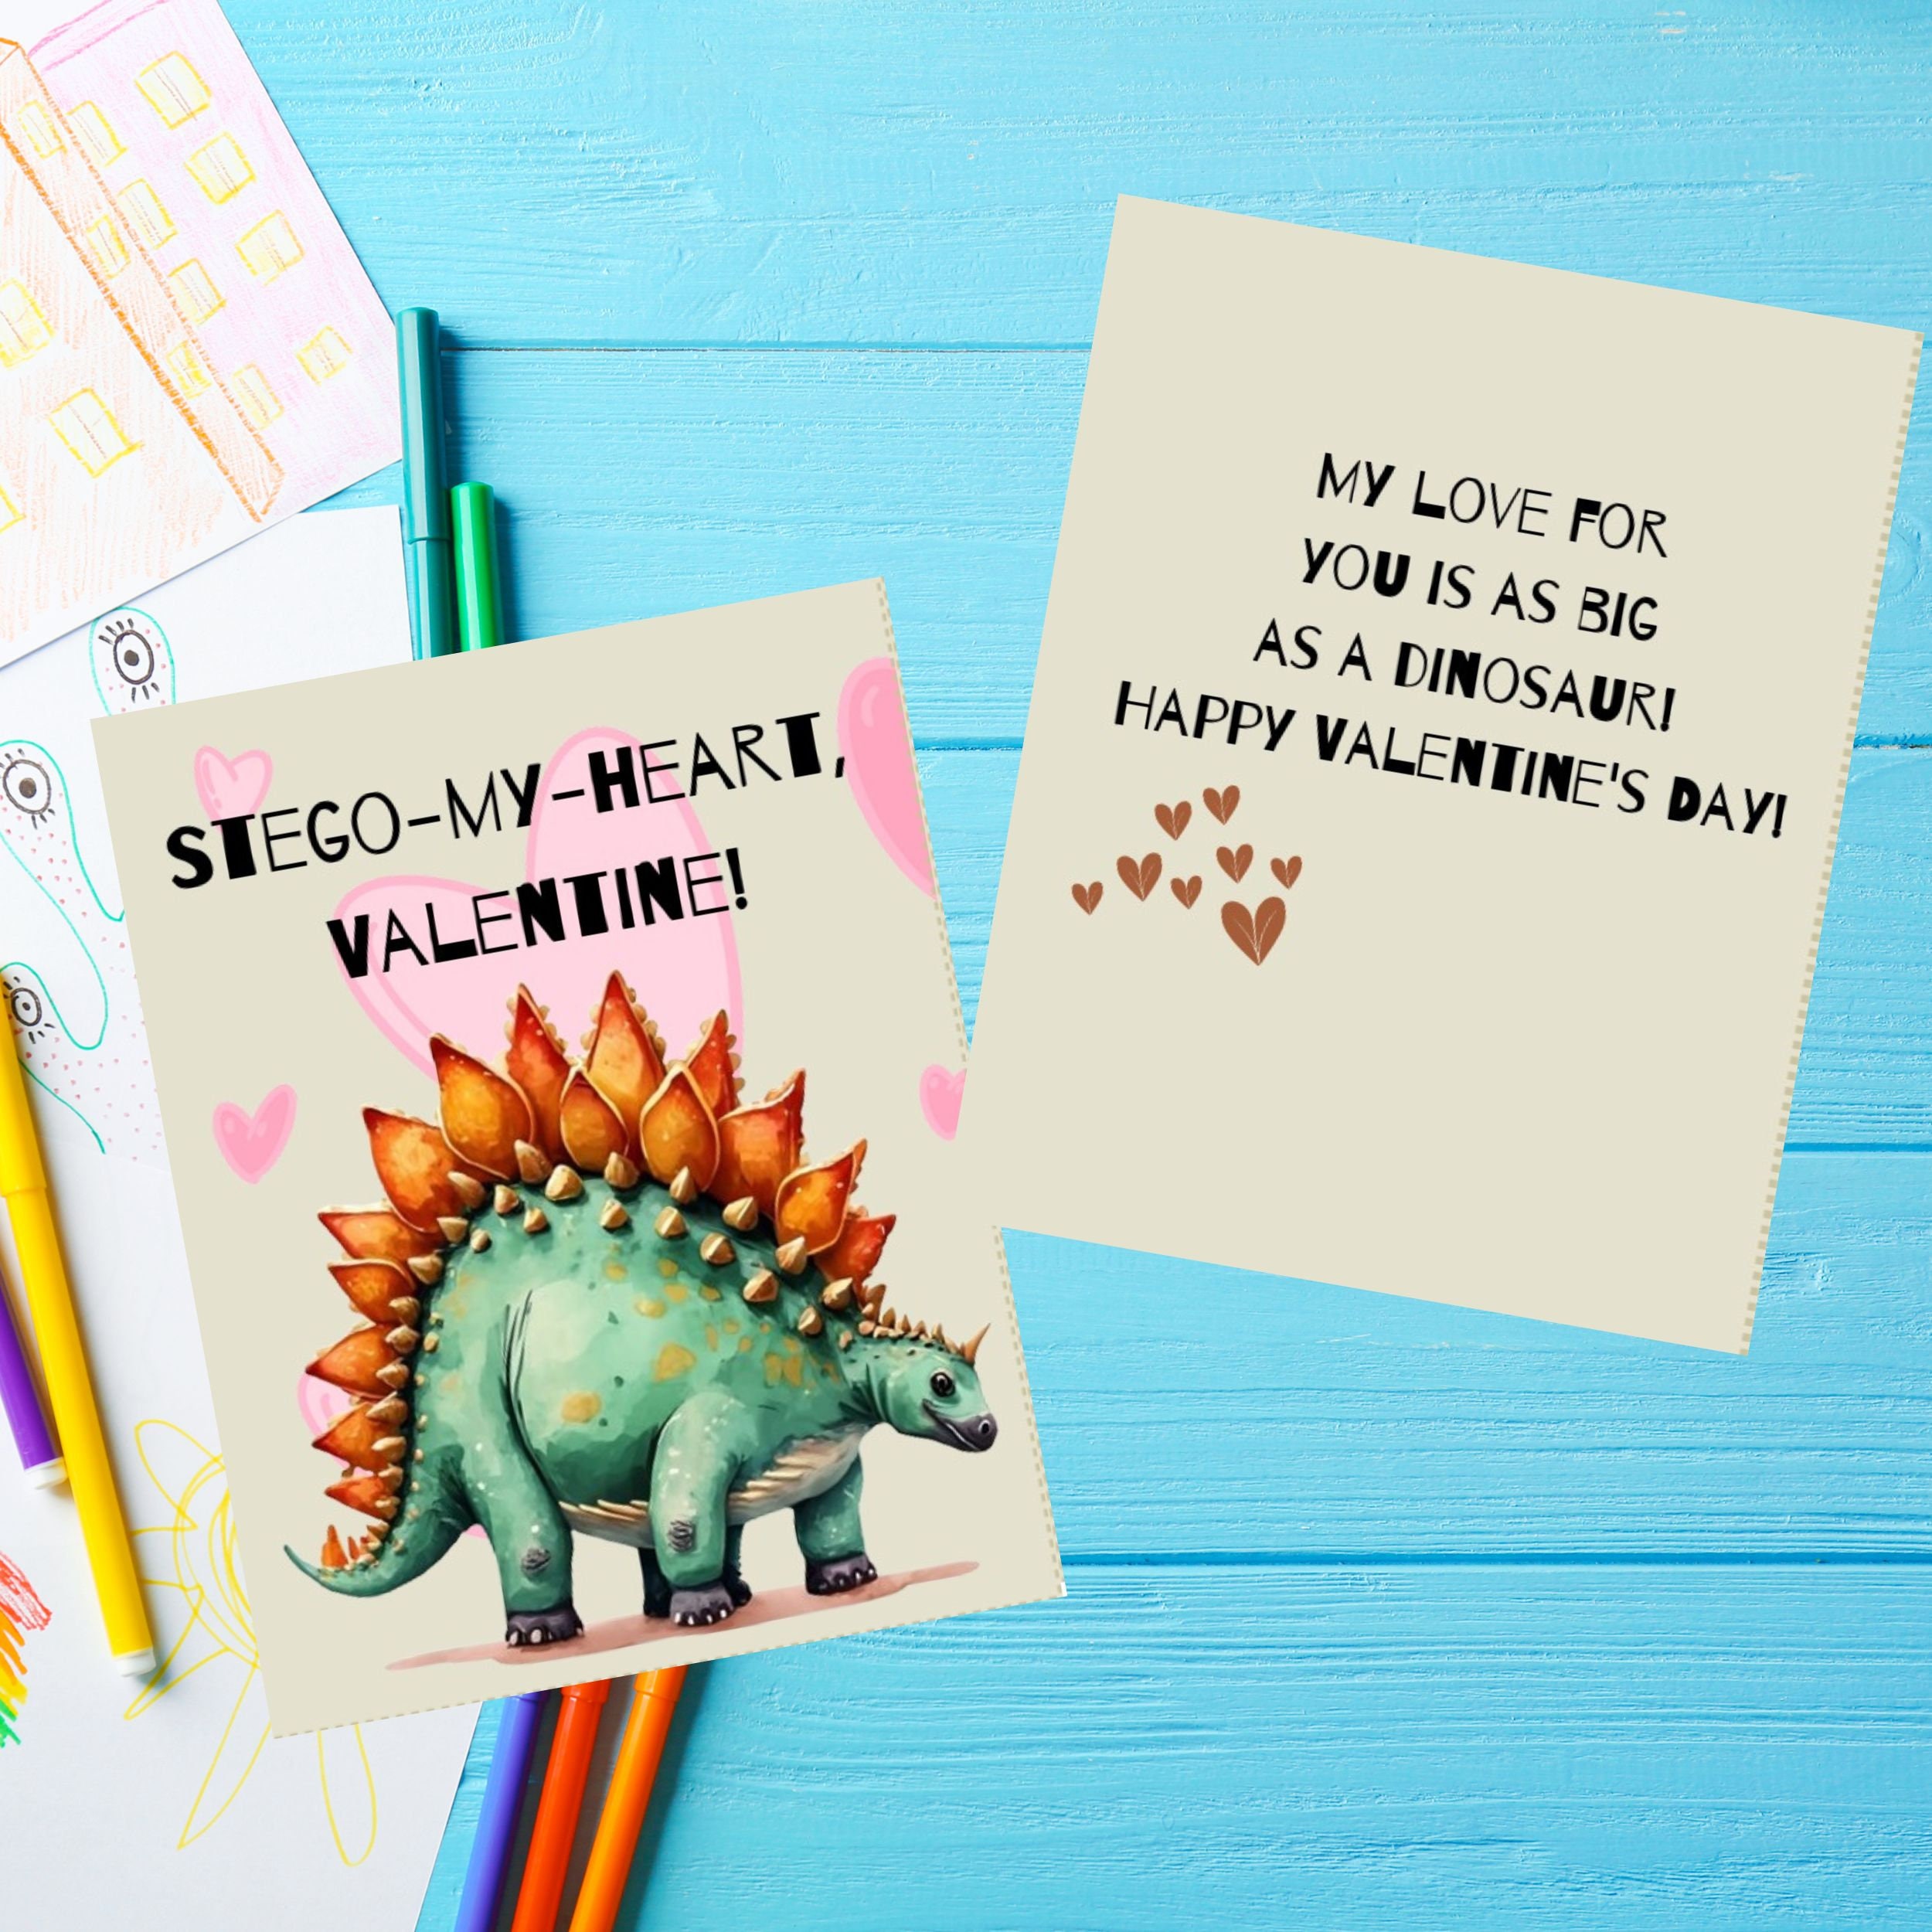 STEGO-MY-HEART,
VALENTINE!
MY LOVE FOR
YOU IS AS BIG
AS A DINOSAUR!
HAPPY VALENTINE'S DAY!